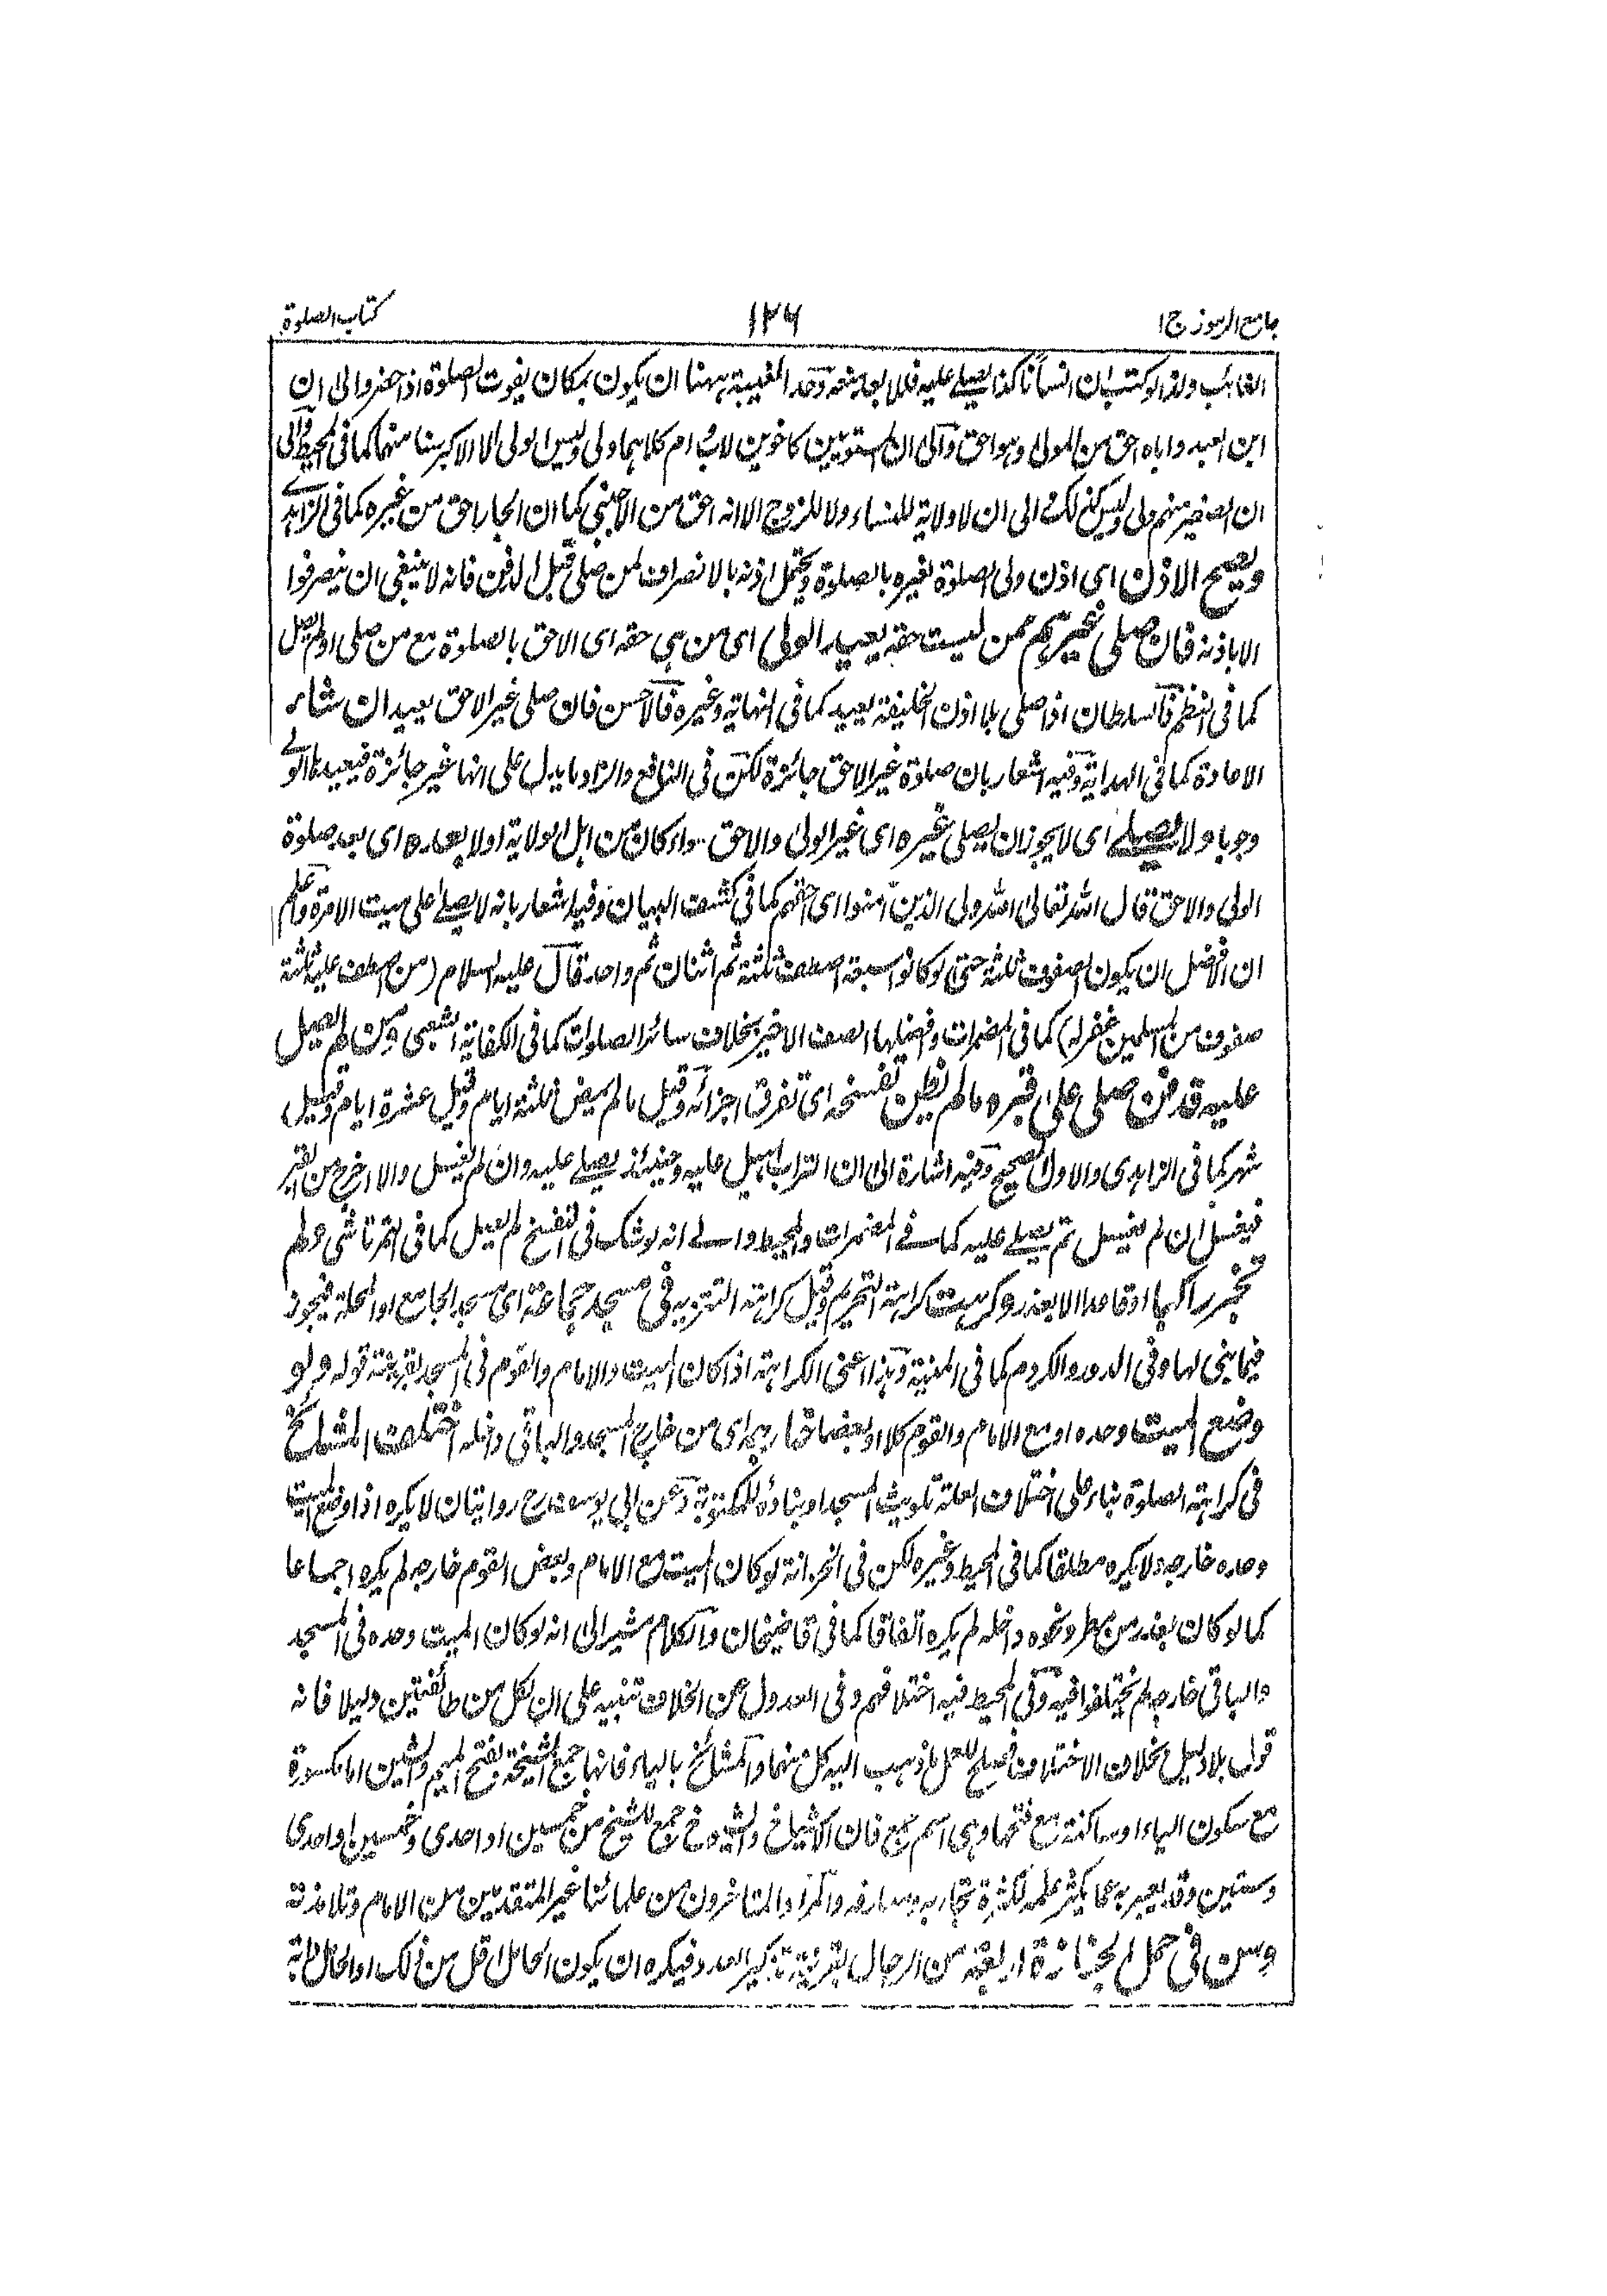 جامع الرموز ج١ ١٢٦ كتاب الصلوة
الغائب ولذا لو كتب بان انسانا كذا يصلے عليه فللابعد منعه وحد الغيبة ههنا ان يكون بمكان يفوت الصلوة اذا حضر والى ان
ابن العبد واباه احق من المولى وهو احق والى ان المستويين كاخوين لاب وام كلاهما ولى وليس الولى الا الاكبر سنا منهما كما فى المحيط والى
ان الصغير منهم ولى وليس كذلك والى ان لا ولاية للنساء ولا للزوج الا انه احق من الاجنبى كما ان الجار احق من غيره كما فى الزاهدے
ويصح الاذن اى اذن ولى الصلوة لغيره بالصلوة ويحتمل اذنه بالانصراف لمن صلى قبل الدفن فانه لا ينبغى ان ينصرفوا
الا باذنه فان صلى غيرهم ممن ليست حقه يعيد الولى اى من هى حقه اى الاحق بالصلوة مع من صلى او لم يصل
كما فى النظم فالسلطان اذا صلى بلا اذن الخليفة يعيد كما فى النهاية وغيره فالاحسن فان صلى غير الاحق يعيد ان شاء
الاعادة كما فى الهداية وفيه اشعار بان صلوة غير الاحق جائزة لكن فى النافع والزاد ما يدل على انها غير جائزة فيعيدها الولے
وجوبا ولا يصلے اى لا يجوز ان يصلى غيره اى غير الولى والاحق سواء كان من اهل الولاية او لا بعده اى بعد صلوة
الولى والاحق قال الله تعالى الله ولى الذين آمنوا اى احقهم كما فى كشف البيان وفيه اشعار بانه لا يصلے على ميت الا مرة واعلم
ان الافضل ان يكون الصفوف ثلثة حتى لو كانوا سبعة اصطف ثلثة ثم اثنان ثم واحد قال عليه السلام (من اصطف عليه ثلثة
صفوف من المسلمين غفر له) كما فى المضمرات وافضلها الصف الاخير بخلاف سائر الصلوات كما فى الكفاية الشعبى ومن لم يصل
عليه فدفن صلى على قبره ما لم يظن تفسخه اى تفرق اجزائه وقيل ما لم يمض ثلثة ايام وقيل عشرة ايام وقيل
شهر كما فى الزاهدى والاول الصحيح وفيه اشارة الى ان التراب اهيل عليه وحينئذ يصلے عليه وان لم يغسل والا اخرج من القبر
فيغسل ان لم يغسل ثم يصلے عليه كما فے المضمرات والمحيط والے انه لو شك فى التفسخ لم يصل كما فى التمرتاشى ولم
تجز راكبا او قاعدا الا بعذر وكرهت كراهة التحريم وقيل كراهة التنزيه فى مسجد جماعة اى مسجد الجامع او المحلة فيجوز
فيما بنى لها وفى الدور والكروم كما فى المنية وهذا اعنى الكراهة اذا كان الميت والامام والقوم فى المسجد بقرينة قوله ولو
وضع الميت وحده او مع الامام والقوم كلا او بعضا خارجه اى من خارج المسجد والباقى داخله اختلف المشائخ
فى كراهة الصلوة بناء على اختلاف العلة تلويث المسجد او بناؤه للمكتوبة وعن ابى يوسف رح روايتان لا يكره اذا وضع الميت
وحده خارجه ولا يكره مطلقا كما فى المحيط وغيره لكن فى الخزانة لو كان الميت مع الامام وبعض القوم خارجه لم يكره اجماعا
كما لو كان بعذر من مطر ونحوه داخله لم يكره اتفاقا كما فى قاضيخان والكلام مشير الى انه لو كان الميت وحده فى المسجد
والباقى خارجه لم يختلفوا فيه وفى المحيط فيه اختلافهم وفى العدول عن الخلاف تنبيه على ان لكل من طائفتين دليلا فانه
قول بلا دليل بخلاف الاختلاف فصلح للعمل ما ذهب اليه كل منهما والمشائخ بالياء فانها جمع المشيخة بفتح الميم والشين اما مكسورة
مع سكون الياء او ساكنة مع فتحها وهى اسم جمع فان الاشياخ والشيوخ جمع للشيخ من خمسين او احدى وخمسين او احدى
وستين وقد يعبر به عما يكثر علمه لكثرة تجاربه ومعارفه والمراد المتاخرون من علمائنا غير المتقدمين من الامام وتلامذته
وسن فى حمل الجنازة اربعة من الرجال بقرينة تذكير العدد فيكره ان يكون الحامل اقل من ذلك او الحامل دابة